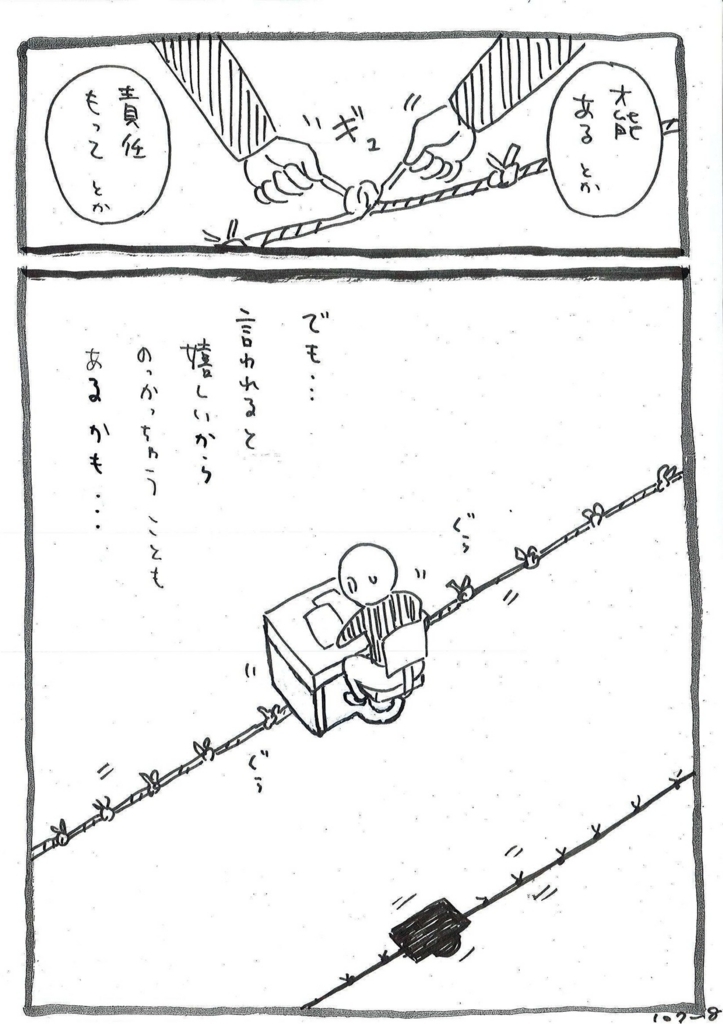 才能
ある とか
ギュ
責任
もって とか
でも…
言われると
嬉しいから
のっかっちゃう ことも
ある かも…
ぐら
ぐら
107-18